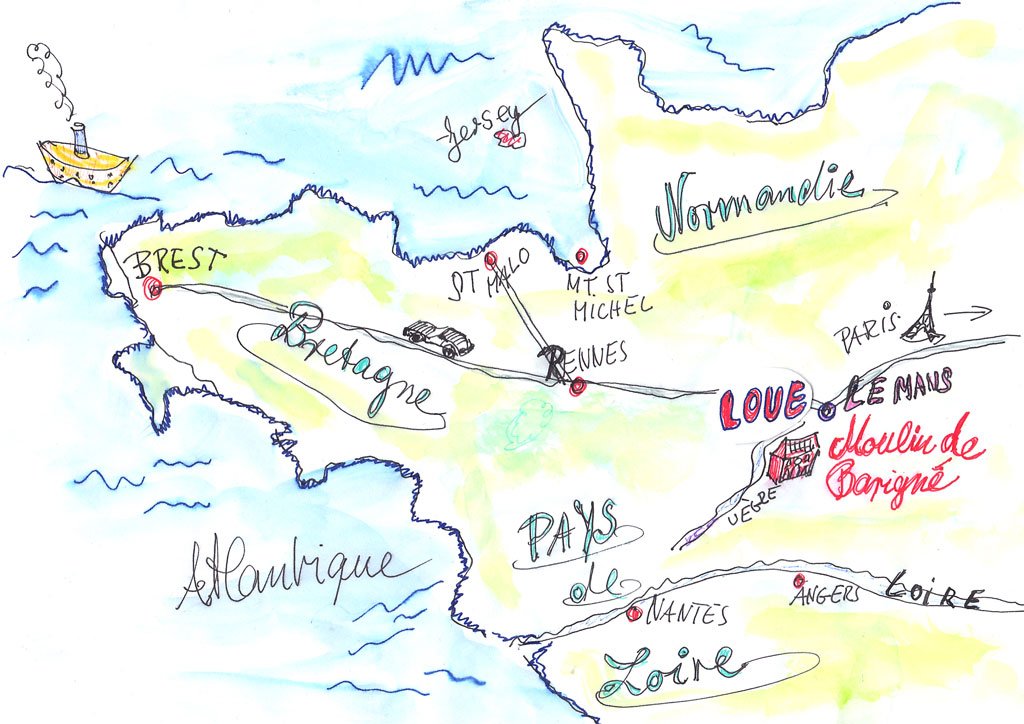 Jersey
Normandie
BREST
ST MALO
MT. ST
MICHEL
Bretagne
RENNES
PARIS
LOUE
LE MANS
Moulin de
Barigné
VÈGRE
PAYS
de
Loire
Atlantique
NANTES
ANGERS
LOIRE